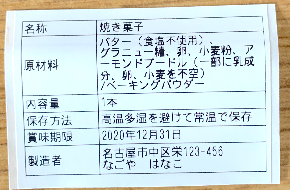 名称 焼き菓子
原材料 バター（食塩不使用）、
グラニュー糖、卵、小麦粉、ア
ーモンドプードル（一部に乳成
分、卵、小麦を不空）
/ベーキングパウダー
内容量 1本
保存方法 高温多湿を避けて常温で保存
賞味期限 2020年12月31日
製造者 名古屋市中区栄123-456
なごや はなこ